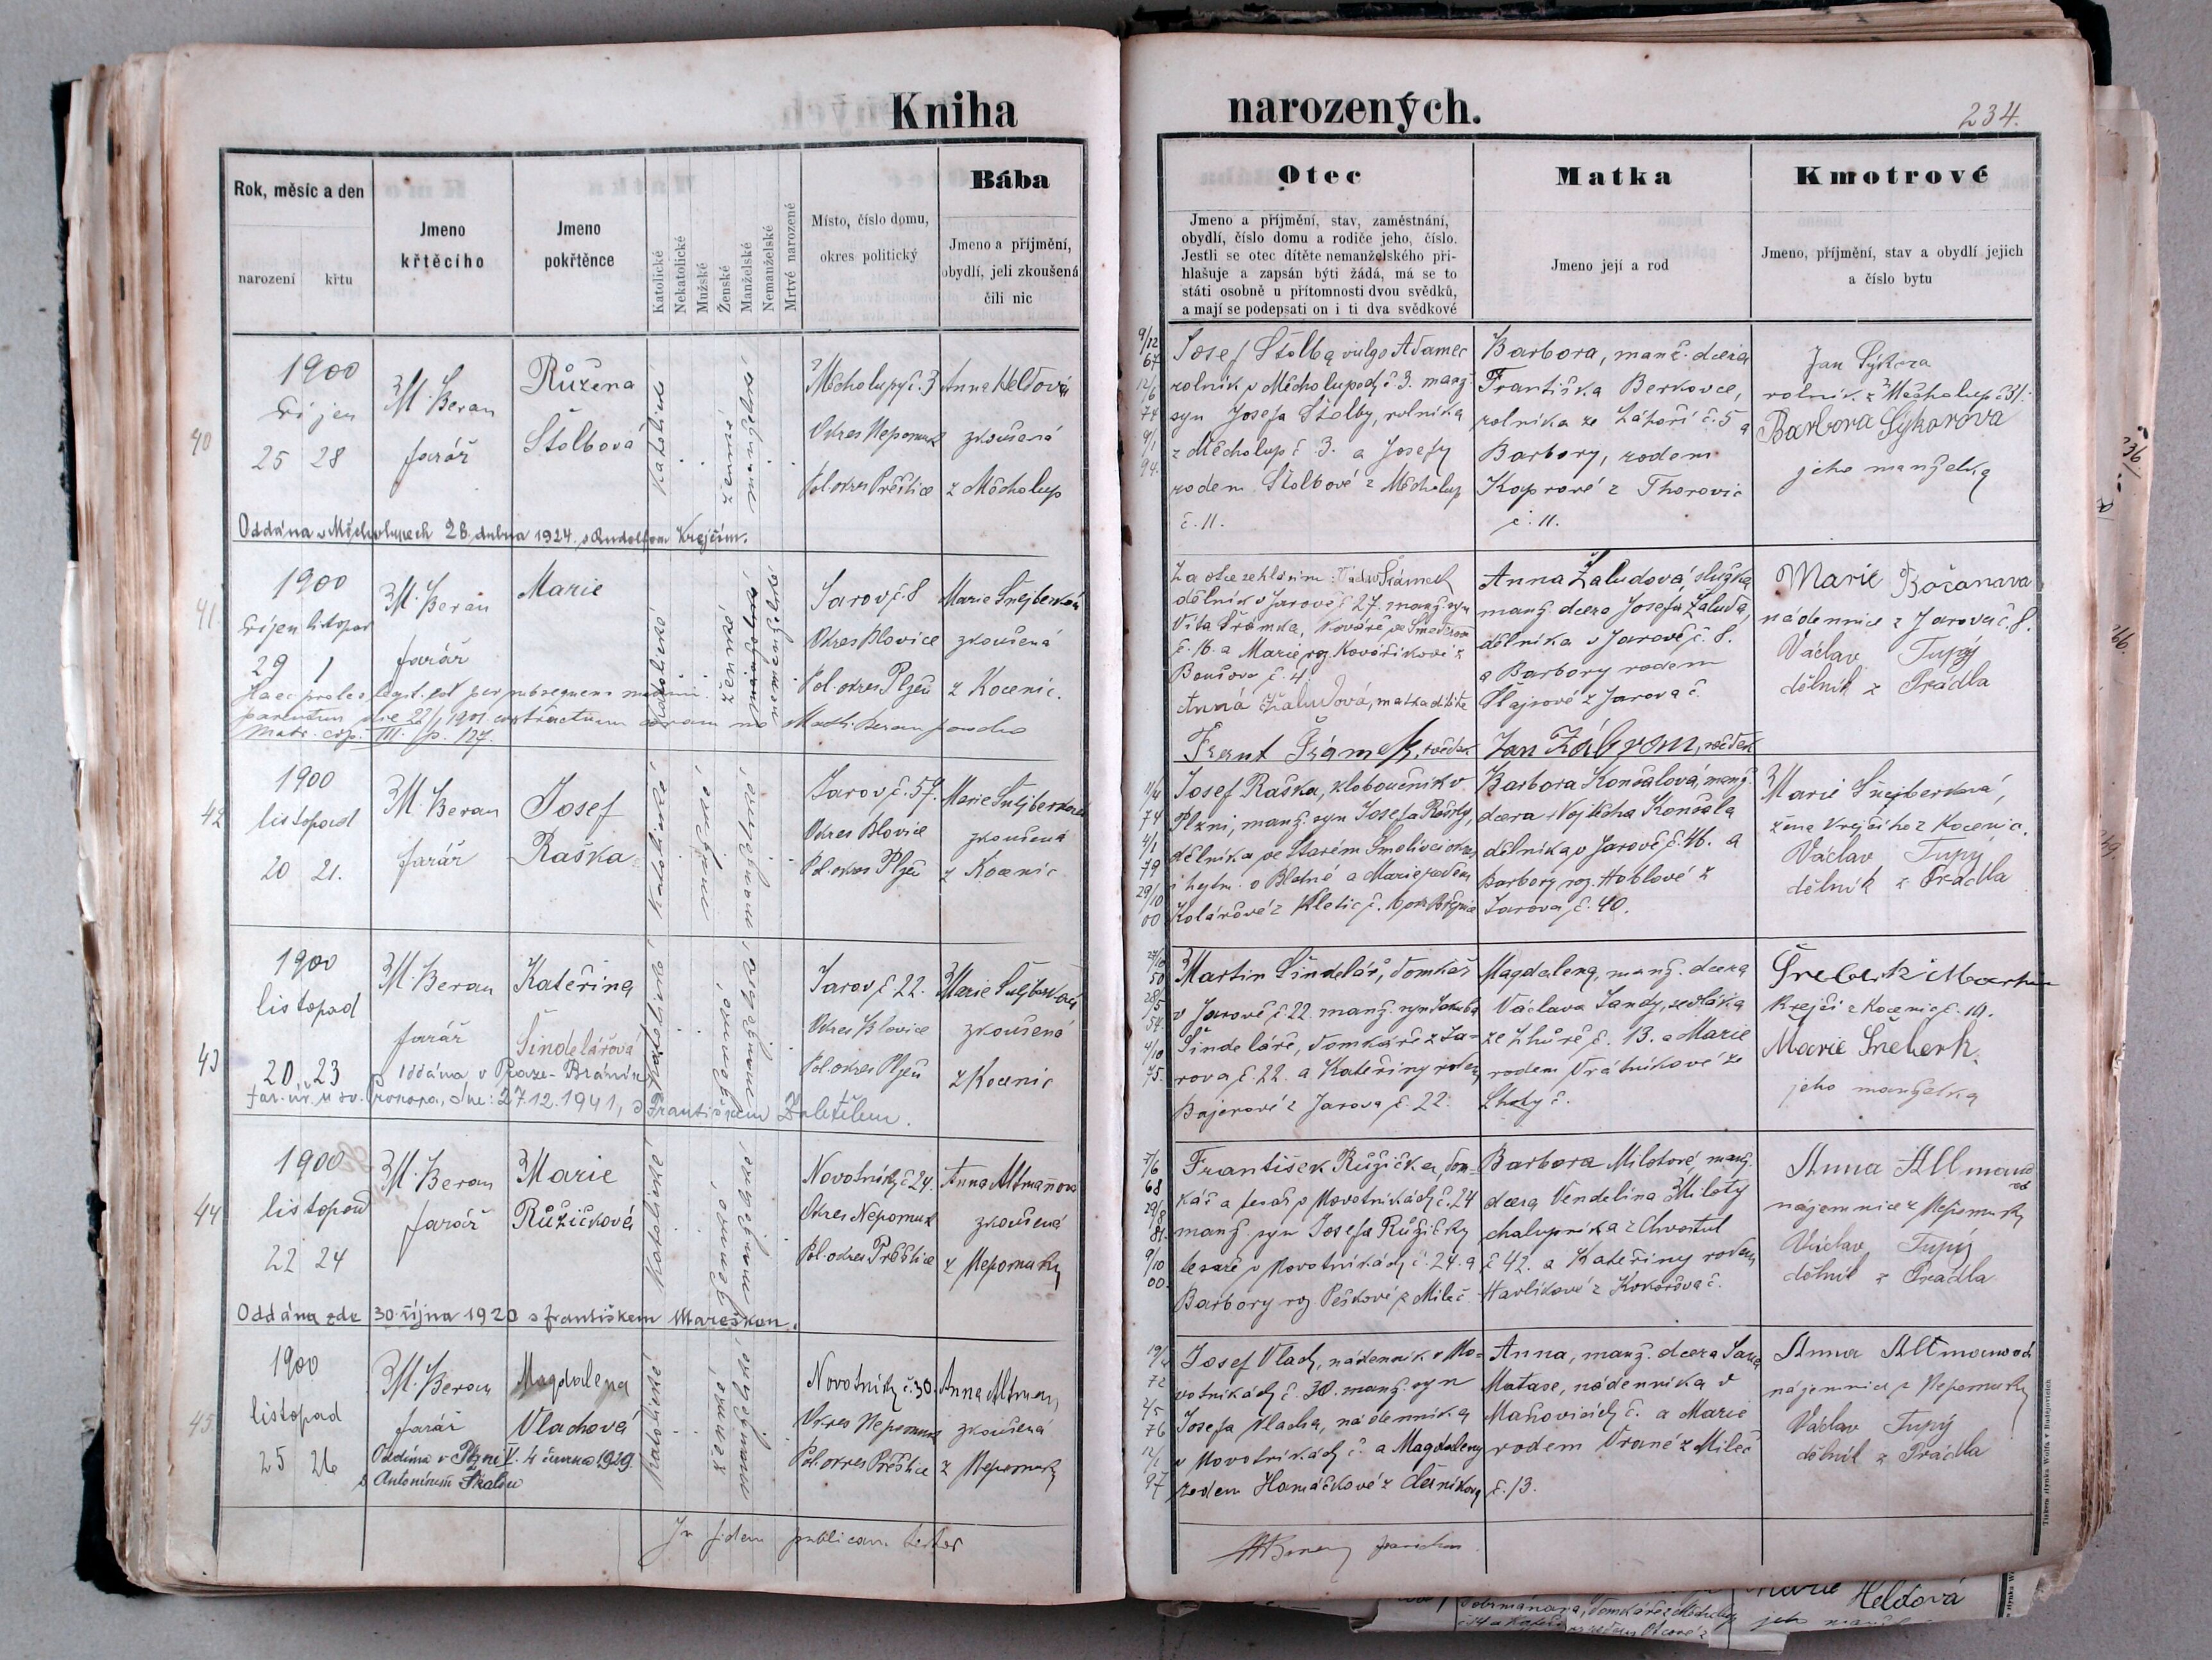 Kniha
narozených.
234.
Rok, měsíc a den
narození
křtu
Jmeno
křtěcího
Jmeno
pokřtěnce
Katolické
Nekatolické
Mužské
Ženské
Manželské
Nemanželské
Mrtvé narozené
Místo, číslo domu,
okres politický
Bába
Jmeno a příjmění,
obydlí, jeli zkoušená
čili nic
Otec
Jmeno a příjmění, stav, zaměstnání,
obydlí, číslo domu a rodiče jeho, číslo.
Jestli se otec dítěte nemanželského při-
hlašuje a zapsán býti žádá, má se to
státi osobně u přítomnosti dvou svědků,
a mají se podepsati on i ti dva svědkové
Matka
Jmeno její a rod
Kmotrové
Jmeno, příjmění, stav a obydlí jejich
a číslo bytu
40
1900
říjen
25 28
M. Beran
farář
Růžena
Štolbová
katolické
ženské
manželské
Měcholupy č. 3
Okres Nepomuk
Pol. okres Přeštice
Anna Heldová
zkoušená
z Měcholup
Oddána v Měcholupech 28. dubna 1924 s Rudolfem Krejčím.
9/12
67
12/6
74
9/1
94.
Josef Štolba vulgo Adamec
rolník v Měcholupech č 3. manž.
syn Josefa Štolby, rolníka
z Měcholup č 3. a Josefy
rodem Štolbové z Měcholup
č. 11.
Barbora, manž. dcera
Františka Berkovce,
rolníka ze Záhoří č. 5 a
Barbory, rodem
Kaprové z Thorovic
č. 11.
Jan Sýkora
rolník z Měcholup č 31.
Barbora Sýkorová
jeho manželka
41.
1900
říjen listopad
29 1
M. Beran
farář
Marie
katolické
ženské
manželské
nemanželské
Jarov č. 8
Okres Blovice
Pol. okres Plzeň
Marie Šnejberková
zkoušená
z Kocenic.
Haec proles legit. est per subsequens matrim.
parentum die 22/1 1901 contractum
Matr. cop. III. p. 127.
Za otce se hlásím: Václav Šrámek
dělník v Jarově č 27. manž. syn
Víta Šrámka, kováře ze
č. 16. a Marie roz. Kovaříkové z
Boušova č. 4.
Anna Žaludová, matka dítěte
Frant Šrámek, svědek
Anna Žaludová, služka
manž. dcera Josefa Žaluda,
dělníka v Jarově č. 8.
a Barbory rodem
z Jarova č.
Jan Zábran, svědek
Marie
nádennice z Jarova č. 8.
Václav Tupý
dělník z Prádla
42
1900
listopad
20 21.
M. Beran
farář
Josef
Raška
katolické
mužské
manželské
Jarov č. 57.
Okres Blovice
Pol. okres Plzeň
Marie Šnejberková
zkoušená
z Kocenic
11/4
74
4/1
79
29/10
00
Josef Raška, kloboučník v
Plzni, manž. syn Josefa Rašky,
dělníka ve Starém Smolivci okres
i hejtm. v Blatné a Marie rodem
Kolářové z
Barbora Končalová, manž.
dcera Vojtěcha Končala
dělníka v Jarově č. 46. a
Barbory roz. Hoblové z
Jarova č. 40.
Marie Šnejberková,
žena krejčího z Kocenic.
Václav Tupý
dělník z Prádla
43
1900
listopad
20 23
M. Beran
farář
Kateřina
Šindelářová
katolické
ženské
manželské
Jarov č 22.
Okres Blovice
Pol. okres Plzeň
Marie Šnejberková
zkoušená
z Kocenic
Oddána v Praze-Braníku
far. úř. u sv. Prokopa, dne: 27.12.1941, s Františkem Zaletilem.
50
28/5
54.
4/10
75.
Martin Šindelář, domkář
v Jarově č 22. manž. syn Jakuba
Šindeláře, domkáře z Ja-
rova č. 22. a Kateřiny rodem
Bajerové z Jarova č. 22.
Magdalena, manž. dcera
Václava Jandy, sedláka
ze Lhůře č. 13. a Marie
rodem Vrátníkové ze
Lhoty č.
Šneberk Martin
krejčí z Kocenic č. 19.
Marie Šneberk.
jeho manželka
44
1900
listopad
22 24
M. Beran
farář
Marie
Růžičková
katolické
ženské
manželské
Novotníky č 24.
Okres Nepomuk
Pol. okres Přeštice
Anna Altmanová
zkoušená
z Nepomuky
Oddána zde 30. října 1920 s Františkem Marešem.
7/6
68
29/8
81.
9/10
00.
František Růžička, dom-
kář a tesař v Novotníkách č. 24
manž. syn Josefa Růžičky
tesaře v Novotníkách č. 24. a
Barbory roz Peškové z Milče
Barbora Milotová, manž.
dcera Vendelína Miloty
chalupníka z Chvostul
č 42. a Kateřiny rodem
Havlíkové z Kokořova č.
Anna Altmanová
nájemnice z Nepomuky
Václav Tupý
dělník z Prádla
45
1900
listopad
25 26
M. Beran
farář
Magdalena
Vlachová
katolické
ženské
manželské
Novotníky č. 30.
Okres Nepomuk
Pol. okres Přeštice
Anna Altman
zkoušená
z Nepomuky
Oddána v Plzni V. 4 června 1929.
s Antonínem Škalou
72
2/5
76
12/1
97
Josef Vlach, nádenník v No-
votníkách č. 30. manž. syn
Josefa Vlacha, nádenníka
v Novotníkách č. a Magdaleny
rodem Hamáčkové z
Anna, manž. dcera Jana
Matase, nádenníka v
Maňovicích č. a Marie
rodem Vrané z Milče
č. 13.
Anna Altmanová
nájemnice z Nepomuky
Václav Tupý
dělník z Prádla
In fidem publicam testor
parochus
Tiskem styskem Wolfa v Budějovicích
Heldová